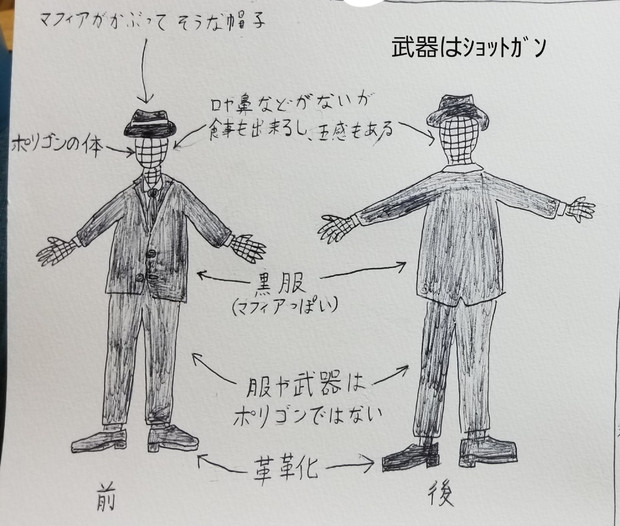 マフィアがかぶってそうな帽子
武器はショットガン
口や鼻などがないが
食事も出来るし、五感もある
ポリゴンの体
黒服
(マフィアっぽい)
服や武器は
ポリゴンではない
革革化
前
後